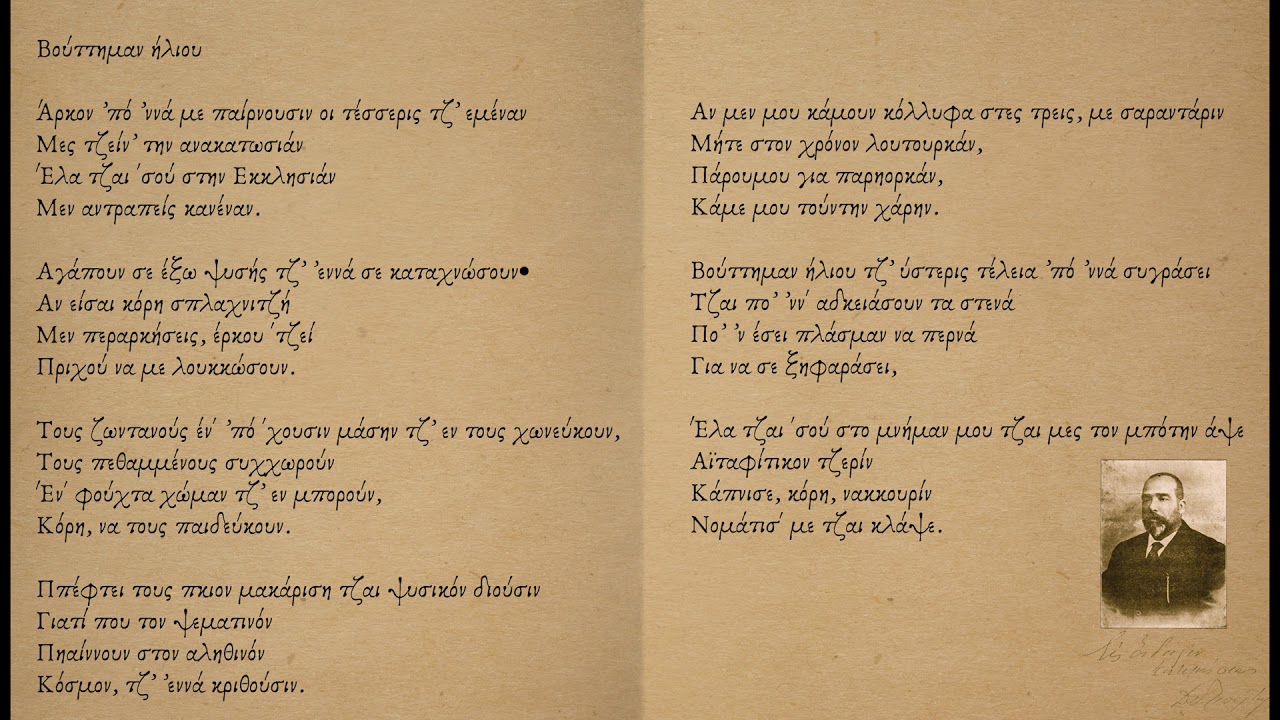 Βούττημαν ήλιου
Άρκον ’πό ’ννά με παίρνουσιν οι τέσσερις τζ’ εμέναν
Μες τζείν’ την ανακατωσιάν
Έλα τζαι ΄σού στην Εκκλησιάν
Μεν αντραπείς κανέναν.
Αγάπουν σε έξω ψυσής τζ’ ’εννά σε καταχνώσουν•
Αν είσαι κόρη σπλαχνιτζή
Μεν περαρκήσεις, έρκου ΄τζεί
Πριχού να με λουκκώσουν.
Τους ζωντανούς έν΄ ’πό ΄χουσιν μάσην τζ’ εν τους χωνεύκουν,
Τους πεθαμμένους συχχωρούν
Έν΄ φούχτα χώμαν τζ’ εν μπορούν,
Κόρη, να τους παιδεύκουν.
Ππέφτει τους πκιον μακάριση τζαι ψυσικόν διούσιν
Γιατί που τον ψεματινόν
Πηαίννουν στον αληθινόν
Κόσμον, τζ’ ’εννά κριθούσιν.
Αν μεν μου κάμουν κόλλυφα στες τρεις, με σαραντάριν
Μήτε στον χρόνον λουτουρκάν,
Πάρουμου για παρηορκάν,
Κάμε μου τούντην χάρην.
Βούττημαν ήλιου τζ’ ύστερις τέλεια ’πό ’ννά συγράσει
Τζαι πο’ ’νν΄ αδκειάσουν τα στενά
Πο’ ’ν έσει πλάσμαν να περνά
Για να σε ξηφαράσει,
Έλα τζαι ΄σού στο μνήμαν μου τζαι μες τον μπότην άψε
Αϊταφίτικον τζερίν
Κάπνισε, κόρη, νακκουρίν
Νομάτισ΄ με τζαι κλάψε.